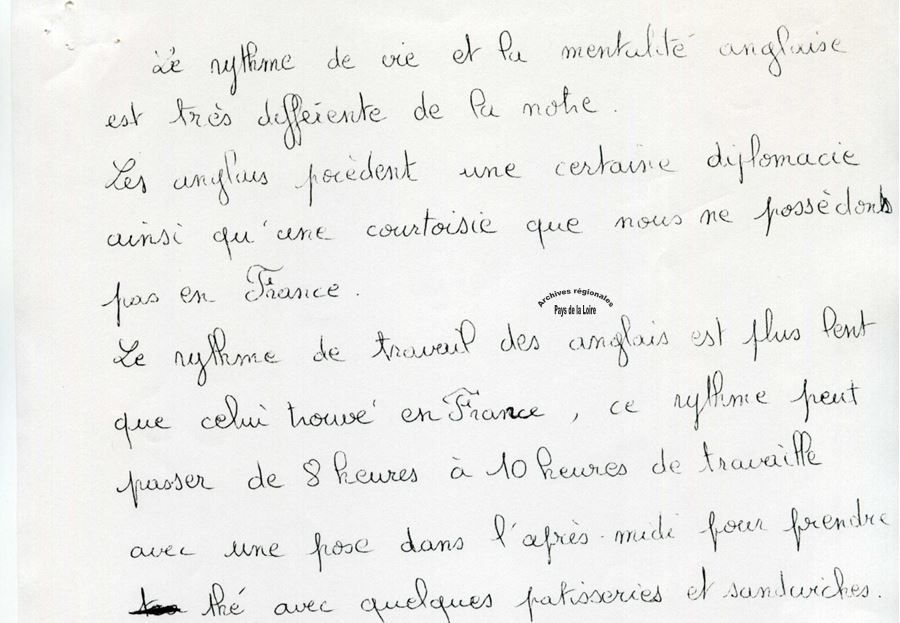 Lé rythme de vie et la mentalité anglaise
est très différente de la notre.
Les anglais pocèdent une certaine diplomacie
ainsi qu'une courtoisie que nous ne possèdons
pas en France.
Archives régionales
Pays de la Loire
Le rythme de travail des anglais est plus lent
que celui trouvé en France, ce rythme peut
passer de 8 heures à 10 heures de travaille
avec une pose dans l'après-midi pour prendre
thé avec quelques patisseries et sandwiches.